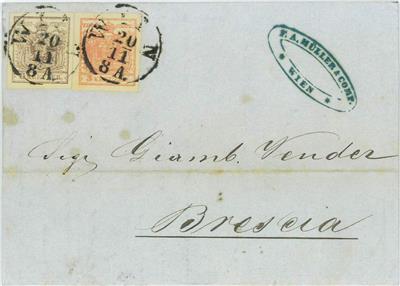 WIEN
20
11
8 A.
WIEN
20
11
8 A.
F. A. MÜLLER & COMP.
* WIEN *
Sigr Giamb. Vender
Brescia